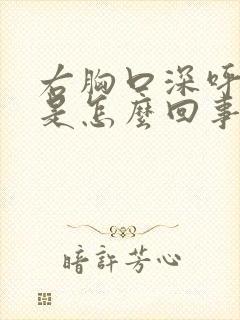 右胸口深呼
是怎麼回事
暗許芳心